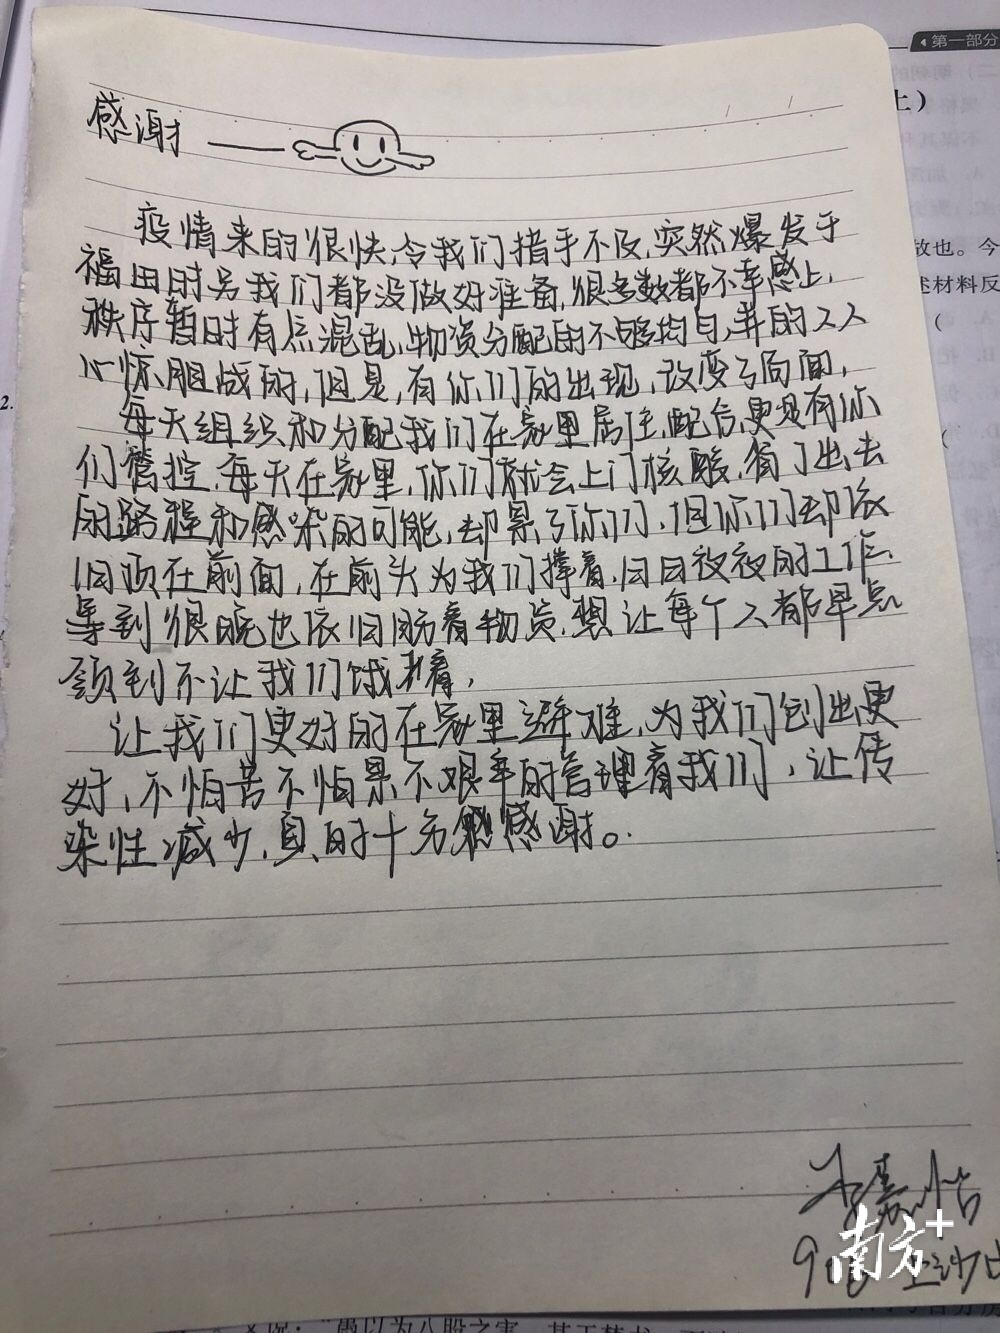 第一部分
感谢
上）
疫情来的很快,令我们措手不及,突然爆发于
放也。今
福田时另我们都没做好准备,很多数都不幸感上,
述材料反
秩序暂时有点混乱,物资分配的不够均匀,弄的人人
心惊胆战的,但是,有你们的出现,改变了局面,
2.
每天组织和分配我们在家里居住,配合,更是有你
们管控,每天在家里,你们就会上门核酸,省了出去
的路程和感染的可能,却累了你们,但你们却依
旧顶在前面,在前头为我们撑着,日日夜夜的工作,
等到很晚也依旧搬着物资,想让每个人都早点
领到不让我们饿着,
让我们更好的在家里避难,为我们创出更
好,不怕苦不怕累不艰辛的管理着我们,让传
染性减少,真的十分感谢。
南方+
上沙
愚以为八股之害